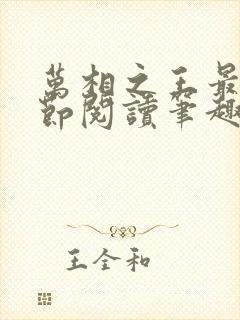 萬相之王最
節閱讀筆趣
王全和